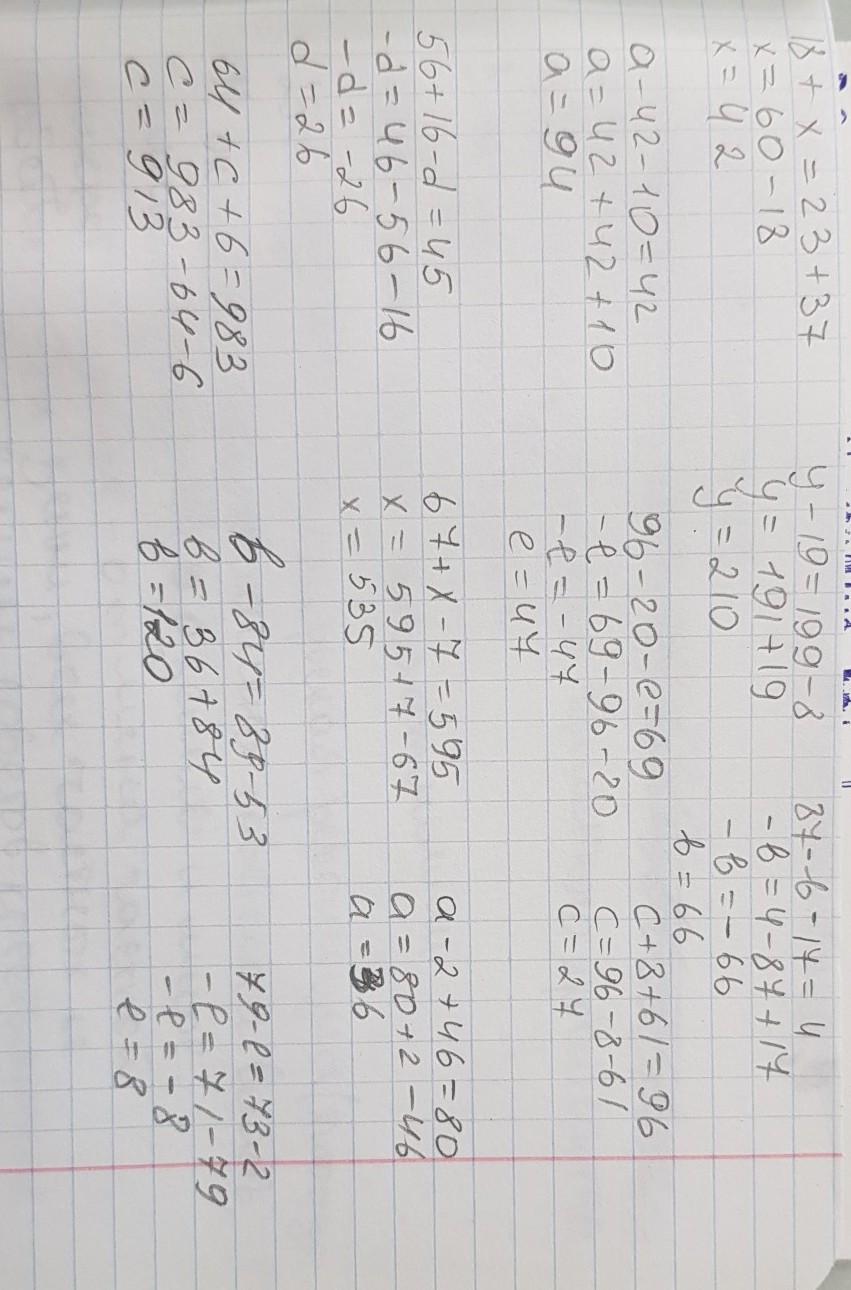 18 + x = 23 + 37
x = 60 - 18
x = 42
y - 19 = 199 - 8
y = 191 + 19
y = 210
87 - b - 17 = 4
-b = 4 - 87 + 17
-b = -66
b = 66
a - 42 - 10 = 42
a = 42 + 42 + 10
a = 94
96 - 20 - e = 69
-e = 69 - 96 - 20
-e = -47
e = 47
c + 8 + 61 = 96
c = 96 - 8 - 61
c = 27
56 + 16 - d = 45
-d = 46 - 56 - 16
-d = -26
d = 26
67 + x - 7 = 595
x = 595 + 7 - 67
x = 535
a - 2 + 46 = 80
a = 80 + 2 - 46
a = 36
64 + c + 6 = 983
c = 983 - 64 - 6
c = 913
b - 84 = 89 - 53
b = 36 + 84
b = 120
79 - e = 73 - 2
-e = 71 - 79
-e = -8
e = 8